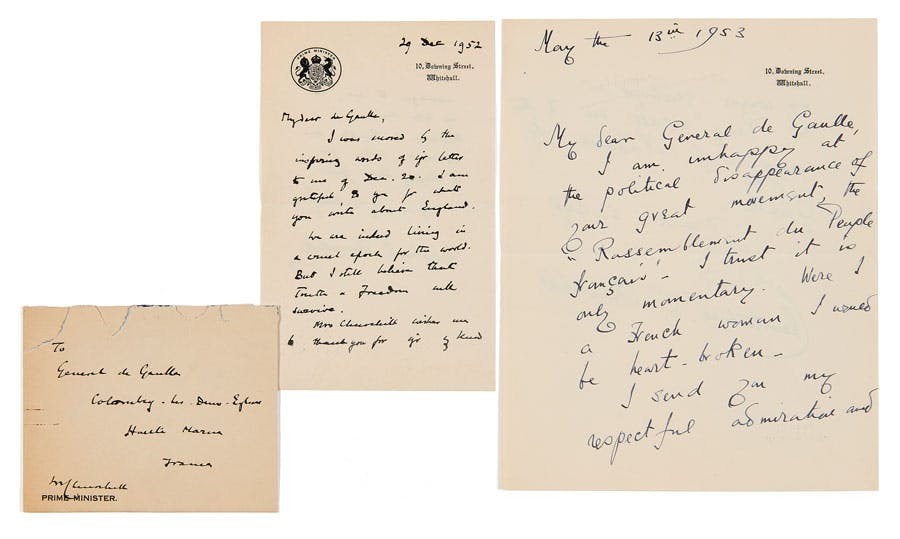 29 Dec 1952
PRIME MINISTER
10, Downing Street,
Whitehall.
My dear de Gaulle,
I was moved by the
inspiring words of yr letter
to me of Dec. 20. I am
grateful to you for what
you write about England.
We are indeed living in
a cruel epoch for the world.
But I still believe that
Truth & Freedom will
survive.
Mrs Churchill wishes me
to thank you for yr kind
To
General de Gaulle
Colombey-les-Deux-Eglises
Haute Marne
France
PRIME MINISTER.
May the 13th 1953
10, Downing Street,
Whitehall.
My dear General de Gaulle,
I am unhappy at
the political disappearance of
your great movement, the
"Rassemblement du Peuple
français" - I trust it is
only momentary. Were I
a French woman I would
be heart-broken -
I send you my
respectful admiration and